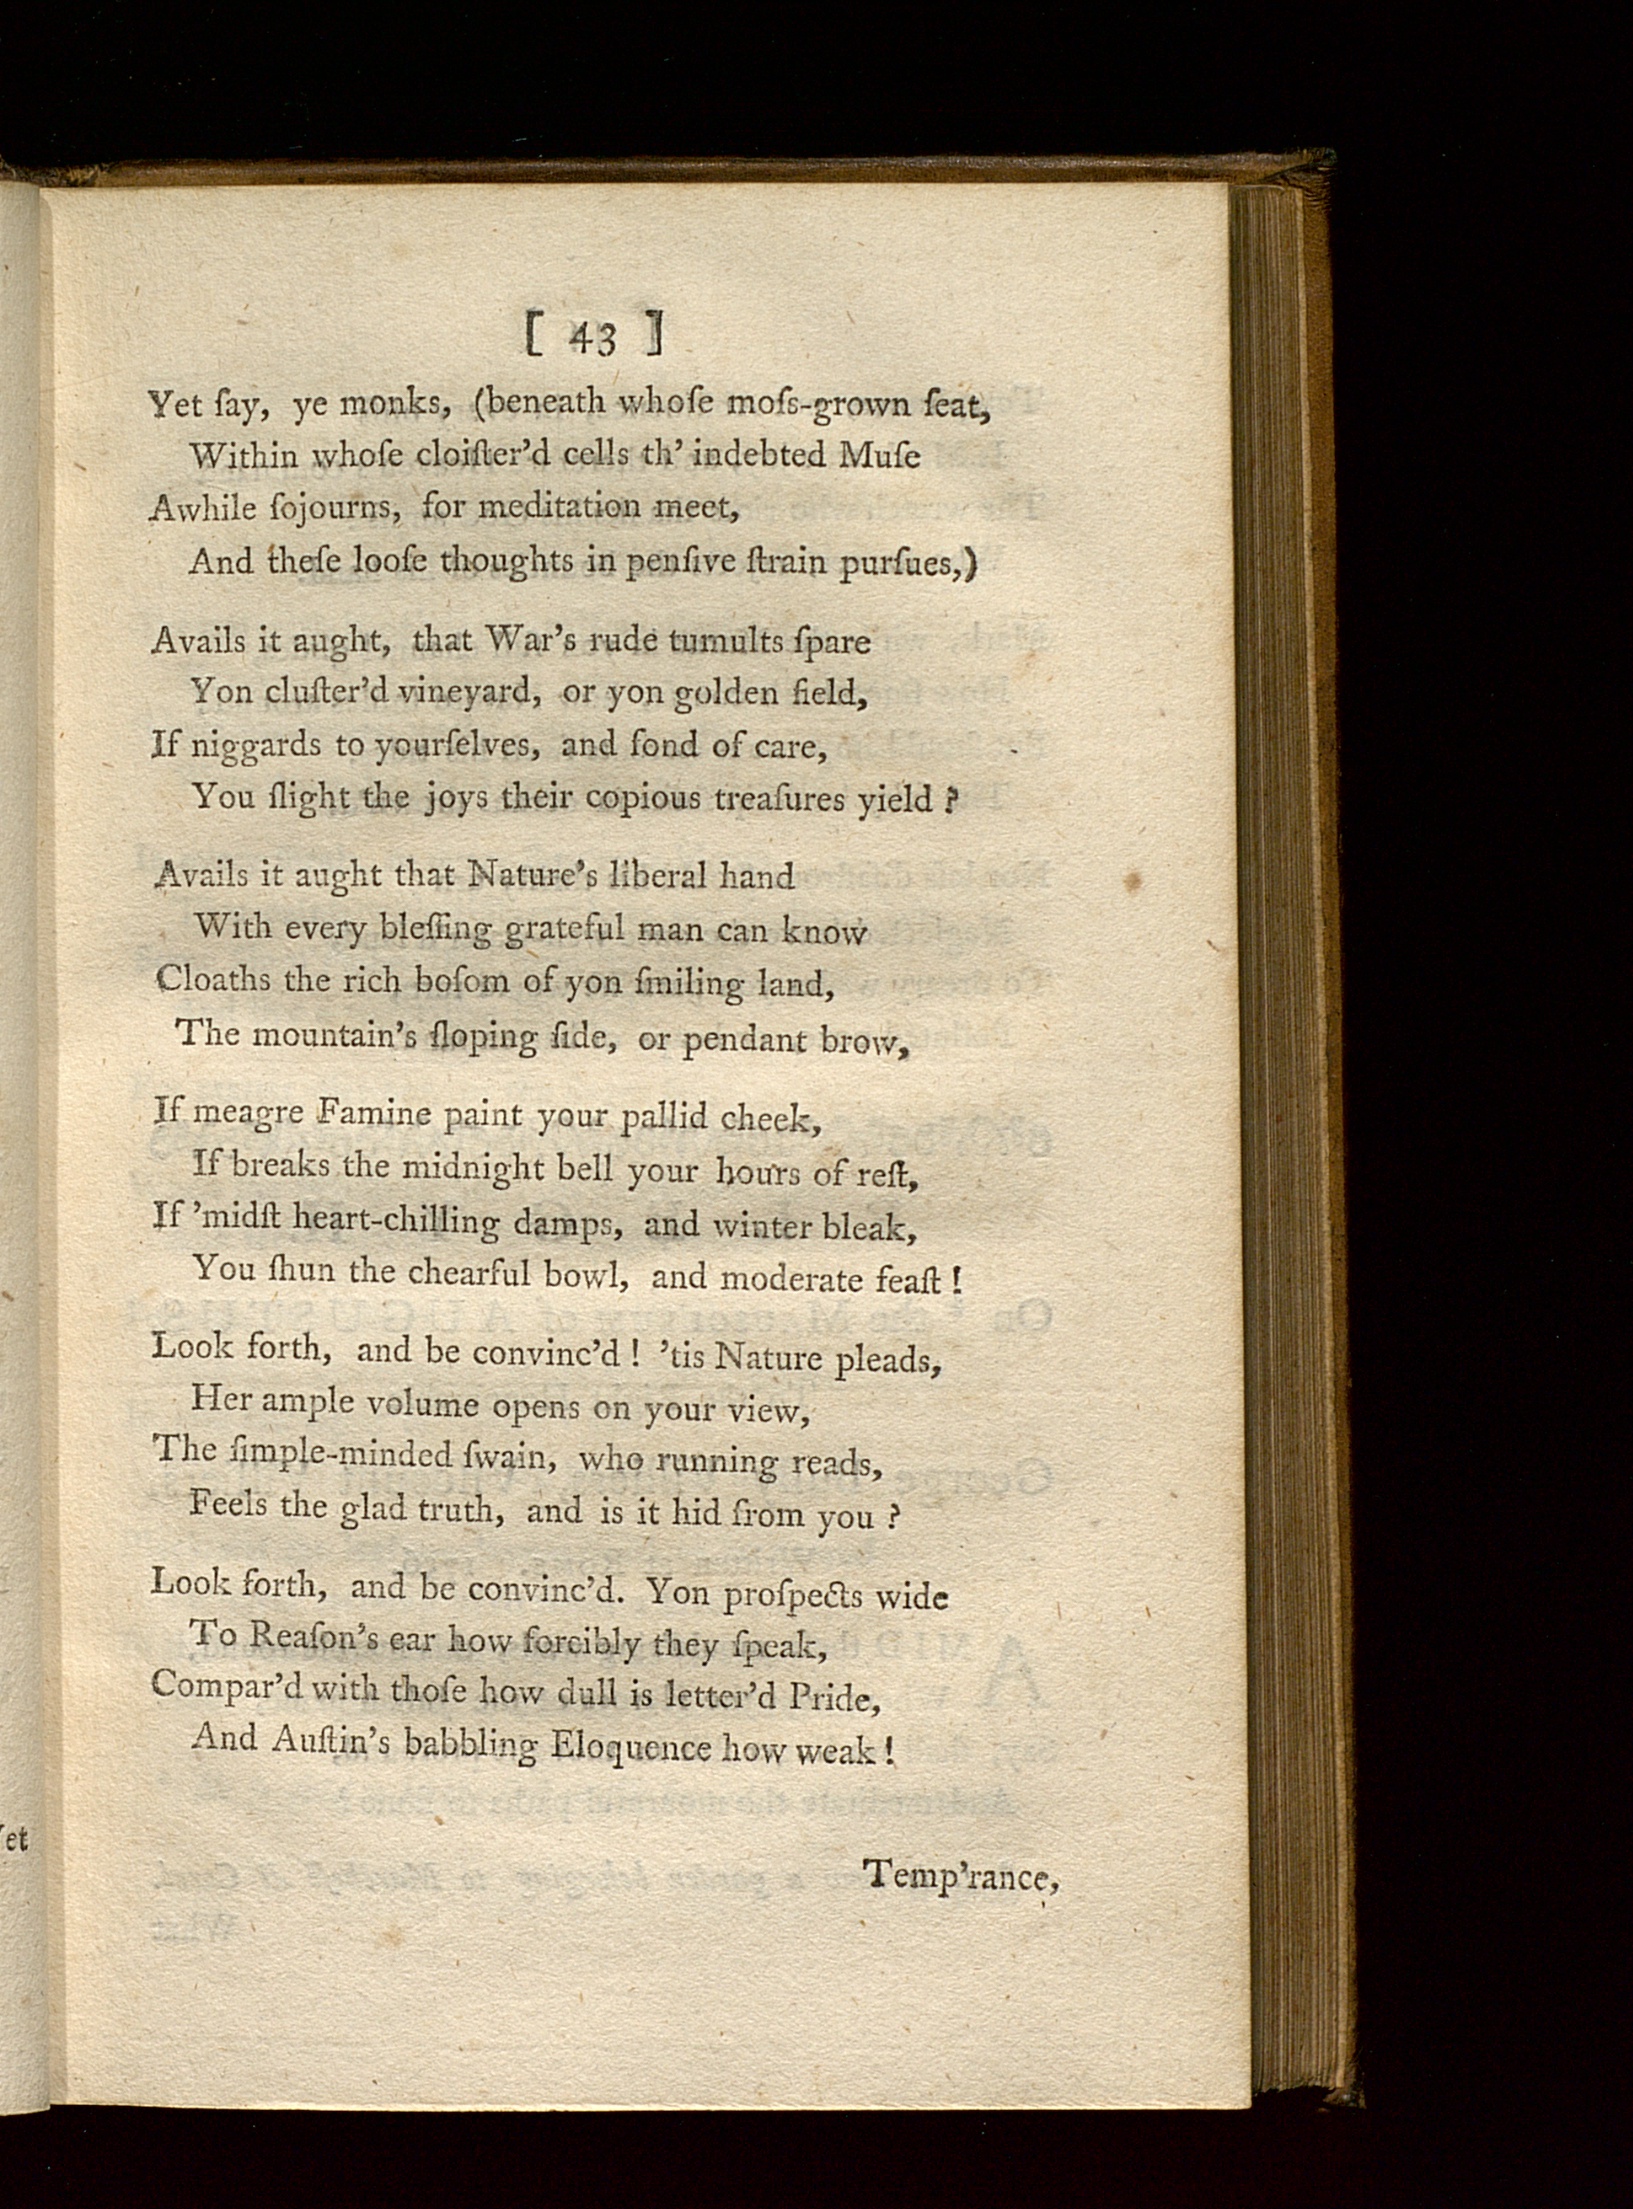 [ 43 ]
Yet ſay, ye monks, (beneath whoſe moſs-grown ſeat,
Within whoſe cloiſter'd cells th' indebted Muſe
Awhile ſojourns, for meditation meet,
And theſe looſe thoughts in penſive ſtrain purſues,)
Avails it aught, that War's rude tumults ſpare
Yon cluſter'd vineyard, or yon golden field,
If niggards to yourſelves, and fond of care,
You ſlight the joys their copious treaſures yield ?
Avails it aught that Nature's liberal hand
With every bleſſing grateful man can know
Cloaths the rich boſom of yon ſmiling land,
The mountain's ſloping ſide, or pendant brow,
If meagre Famine paint your pallid cheek,
If breaks the midnight bell your hours of reſt,
If 'midſt heart-chilling damps, and winter bleak,
You ſhun the chearful bowl, and moderate feaſt !
Look forth, and be convinc'd ! 'tis Nature pleads,
Her ample volume opens on your view,
The ſimple-minded ſwain, who running reads,
Feels the glad truth, and is it hid from you ?
Look forth, and be convinc'd. Yon proſpects wide
To Reaſon's ear how forcibly they ſpeak,
Compar'd with thoſe how dull is letter'd Pride,
And Auſtin's babbling Eloquence how weak !
Temp'rance,